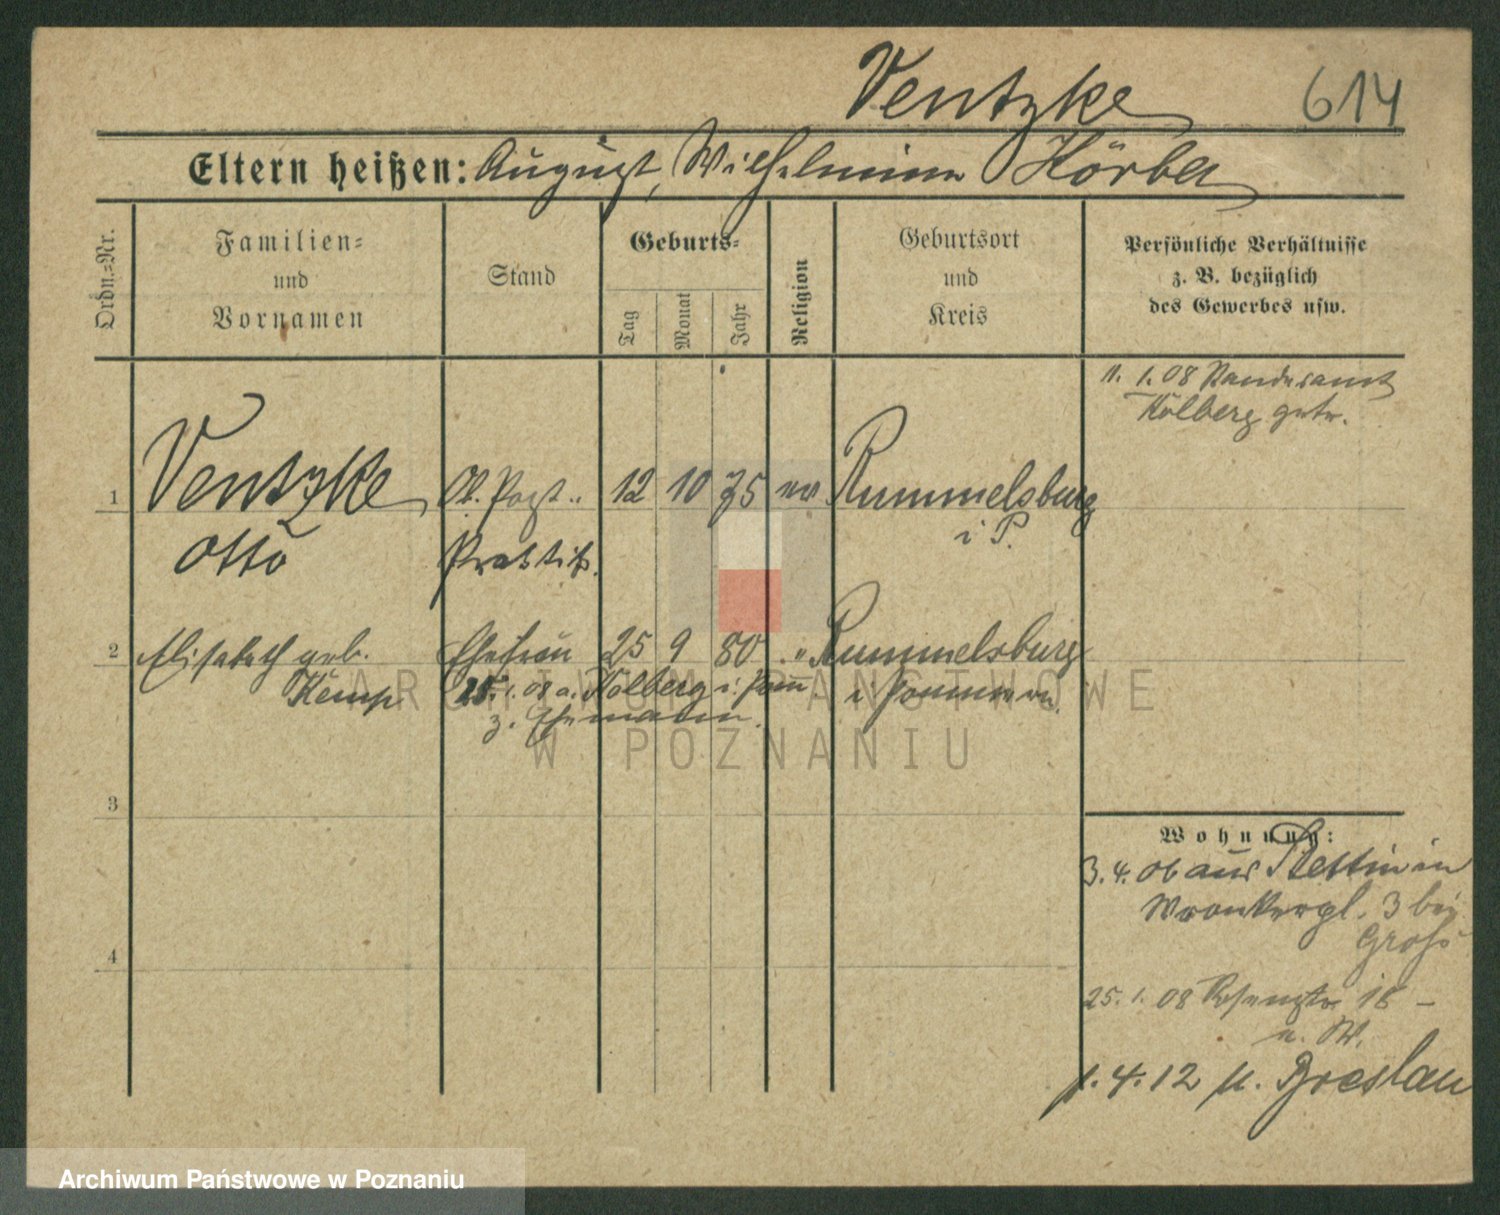 Ventzke 614
Eltern heißen: August, Wilhelmine Körber
Ordn.=Nr.
Familien=
und
Vornamen
Stand
Geburts=
Tag
Monat
Jahr
Religion
Geburtsort
und
Kreis
Persönliche Verhältnisse
z. B. bezüglich
des Gewerbes usw.
11. 1. 08 Standesamt
Kolberg getr.
1 Ventzke Ob. Post- 12 10 75 ev Rummelsburg
Otto Praktik. i P.
2 Elisabeth geb. Ehefrau 25 9 80 " Rummelsburg
Kemp 25. 1. 08 a. Kolberg i. Pom i Pommern
z. Ehemann.
3
4
Wohnung:
3. 4. 06 aus Stettin in
Wronkerpl. 3 bei
Groß
25. 1. 08 18 –
u. W.
1. 4. 12 n. Breslau
ARCHIWUM PAŃSTWOWE
W POZNANIU
Archiwum Państwowe w Poznaniu